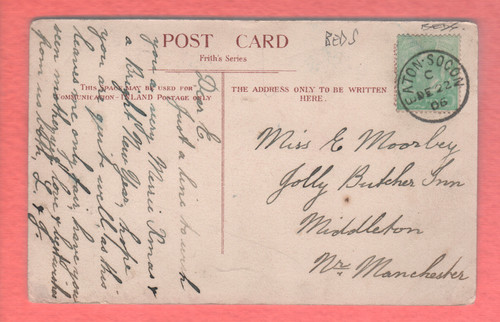 BEDS
POST CARD
Frith's Series
THIS SPACE MAY BE USED FOR
COMMUNICATION - INLAND POSTAGE ONLY
THE ADDRESS ONLY TO BE WRITTEN
HERE.
EATON-SOCON
C
DE 22
06
Dear E
Just a line to wish
you a very Merrie Xmas &
a Bright New Year, hope
you are quite well as this
leaves me only fair, have you
seen mother love &
from us both, L. & J.
Miss E Moorbey
Jolly Butcher Inn
Middleton
Nr Manchester